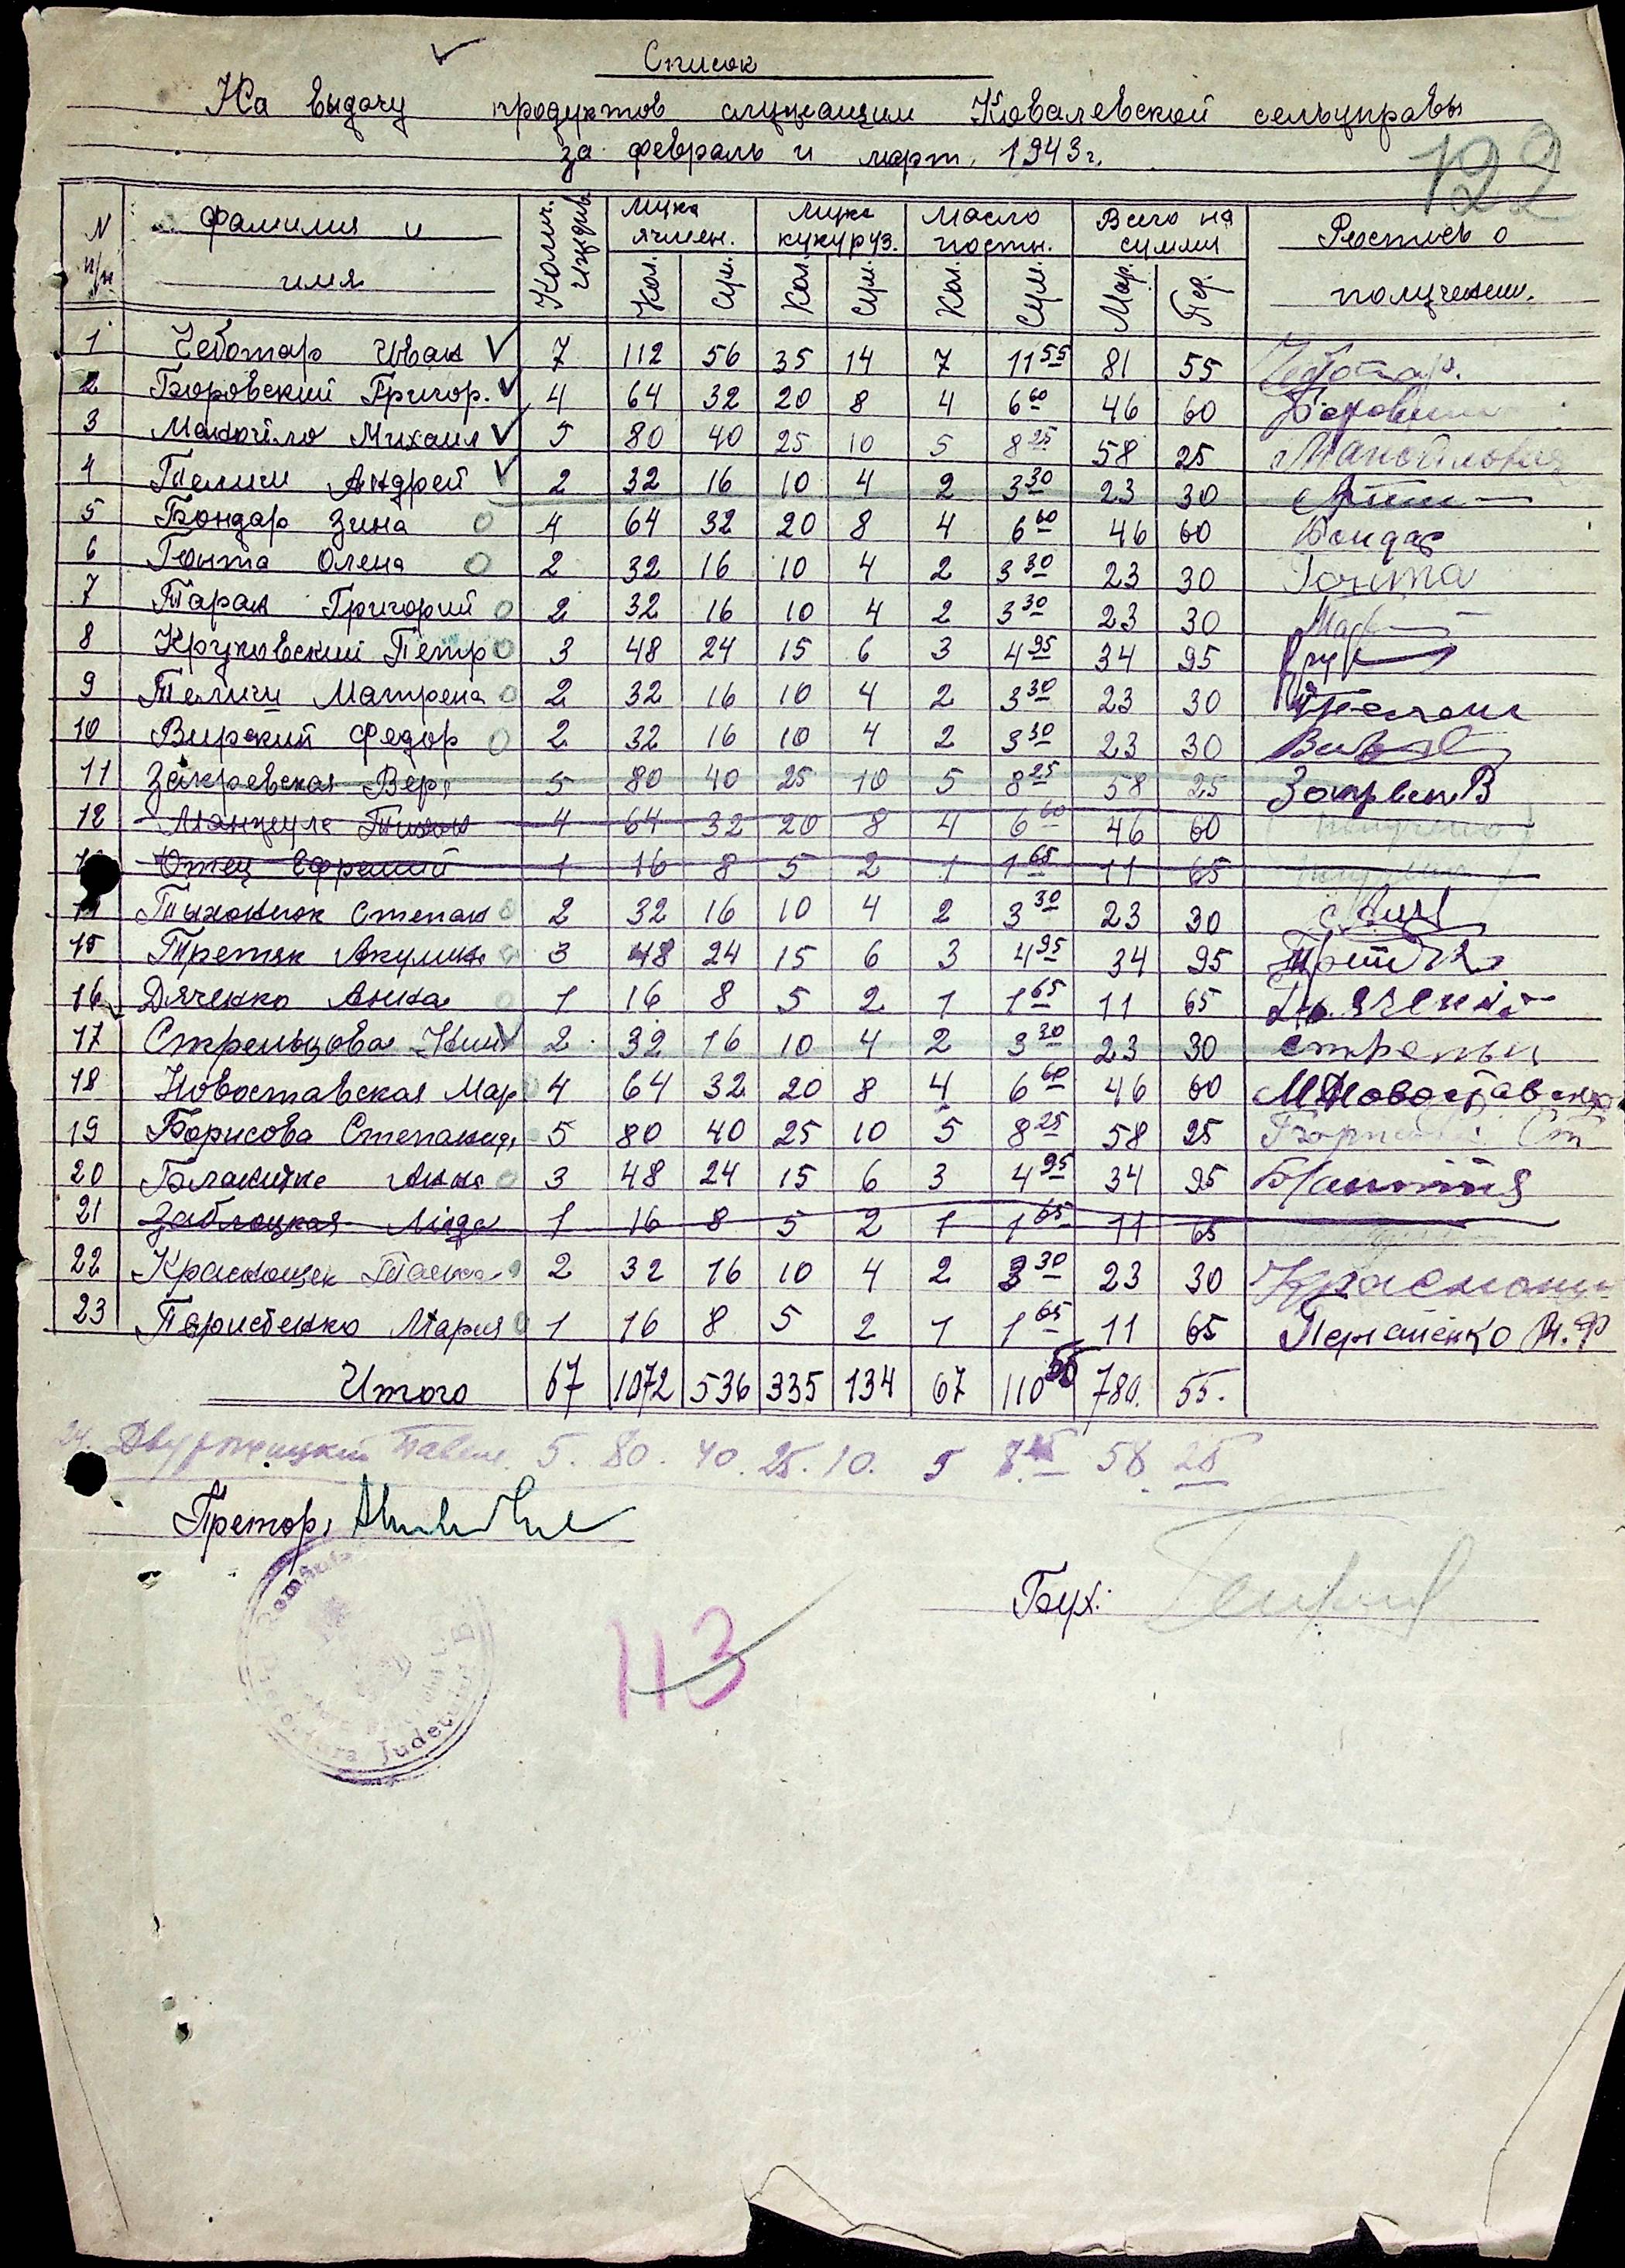 Список
На выдачу продуктов служащим Ковалевской сельуправы
за февраль и март. 1943 г.
122
N п/п фамилия и имя Колич. индив. мука ячмен. мука кукуруз. Масло постн. Всего на сумми Роспись о получении.
Кол. Сум. Кол. Сум. Кол. Сум. Мар. Пф.
1 Чеботар Иван 7 112 56 35 14 7 11 55 81 55 Чеботар.
2 Боровский Григор. 4 64 32 20 8 4 6 60 46 60
3 Манойло Михаил 5 80 40 25 10 5 8 25 58 25
4 Теличи Андрей 2 32 16 10 4 2 3 30 23 30
5 Бондар Зина 4 64 32 20 8 4 6 60 46 60 Бондар
6 Гонта Олена 2 32 16 10 4 2 3 30 23 30 Гонта
7 Таран Григорий 2 32 16 10 4 2 3 30 23 30
8 Круковский Петр 3 48 24 15 6 3 4 95 34 95
9 Теличи Матрена 2 32 16 10 4 2 3 30 23 30
10 Вирский Федор 2 32 16 10 4 2 3 30 23 30
11 Закревская Вера 5 80 40 25 10 5 8 25 58 25
12 Манжула Тихон 4 64 32 20 8 4 6 60 46 60 получено
Отец Ефремий 1 16 8 5 2 1 1 65 11 65
Тыхонюк Степан 2 32 16 10 4 2 3 30 23 30
15 Третяк Акулина 3 48 24 15 6 3 4 95 34 95
16 Дяченко Анна 1 16 8 5 2 1 1 65 11 65
17 Стрельцова Нин 2 32 16 10 4 2 3 30 23 30
18 Новоставская Мар 4 64 32 20 8 4 6 60 46 60 М Новоставская
19 Борисова Степанида 5 80 40 25 10 5 8 25 58 25 Борисова Ст
20 Блакитна Анна 3 48 24 15 6 3 4 95 34 95
21 Заблоцкая Лида 1 16 8 5 2 1 1 65 11 65
22 Краснощек 2 32 16 10 4 2 3 30 23 30
23 Мария 1 16 8 5 2 1 1 65 11 65
Итого 67 1072 536 335 134 67 110 55 780. 55.
24. Павел. 5. 80. 40. 25. 10. 5 8 25 58. 25
Претор,
Бух.
Judetului
113